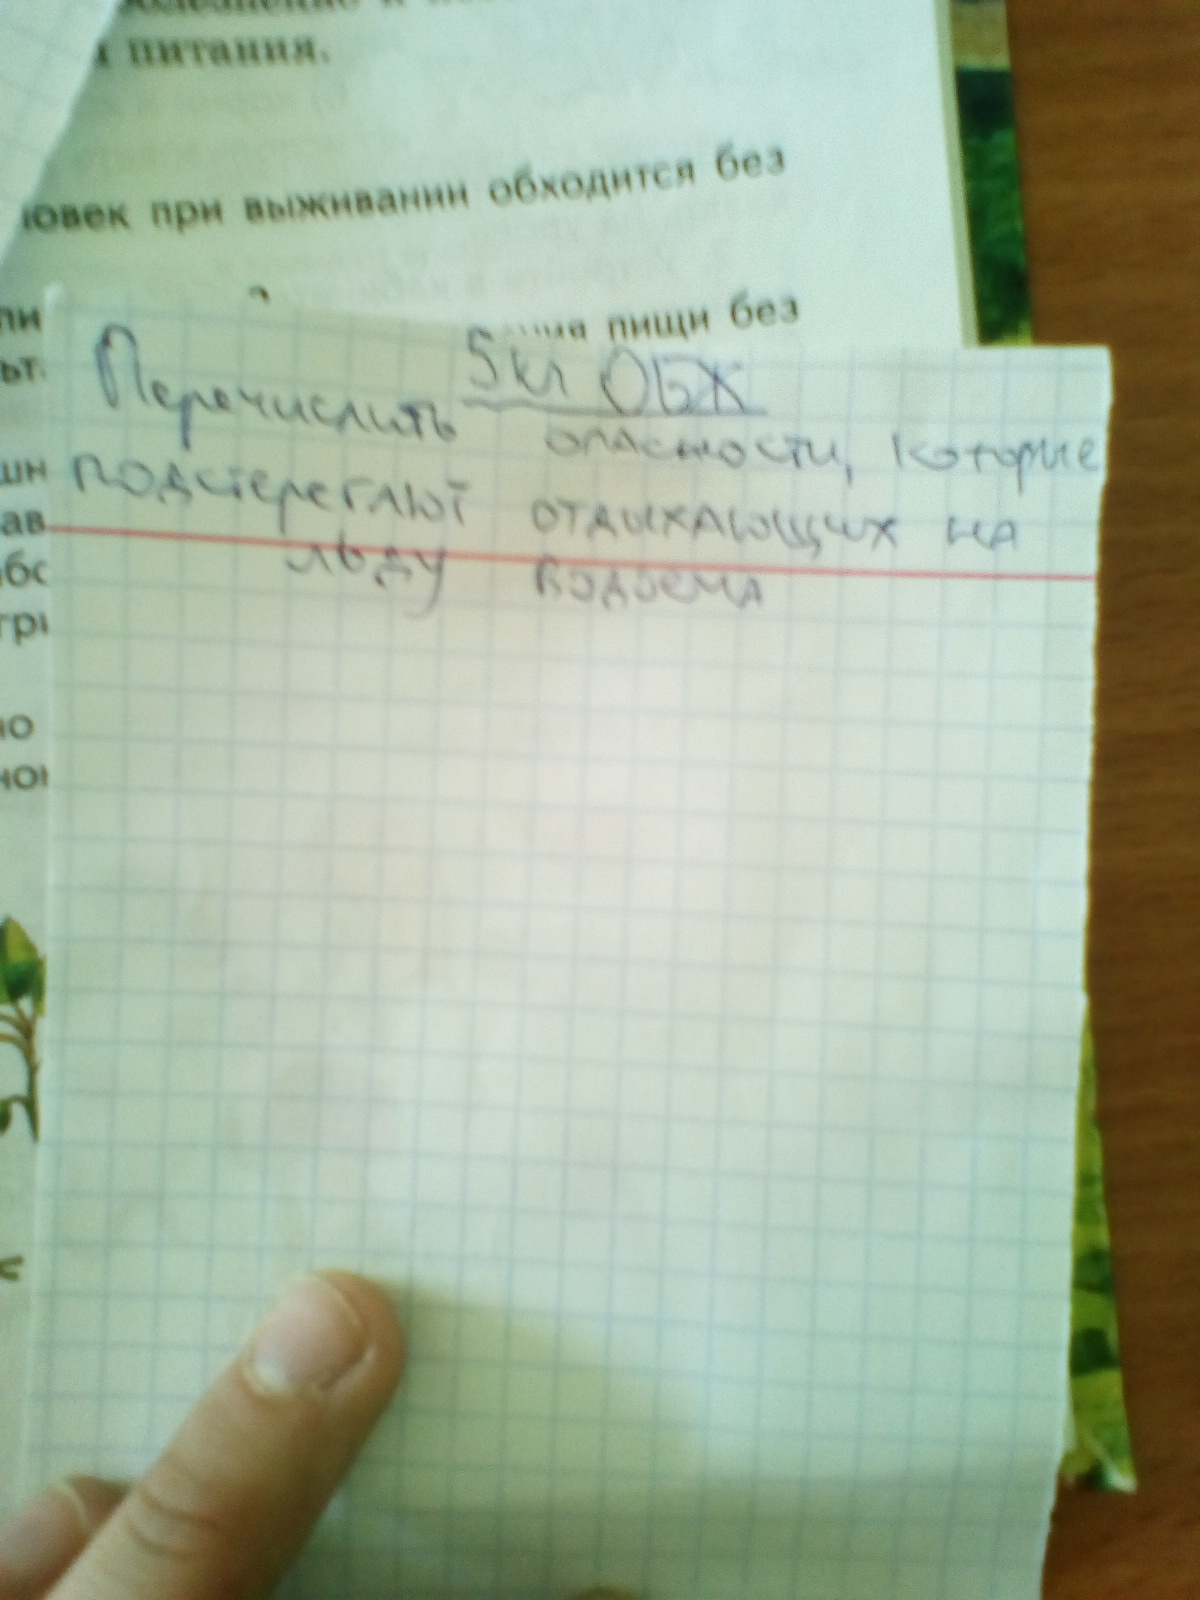 питания.
ловек при выживании обходится без
пищи без
5кл ОБЖ
Перечислить опасности, которые
подстерегают отдыхающих на
льду водоема